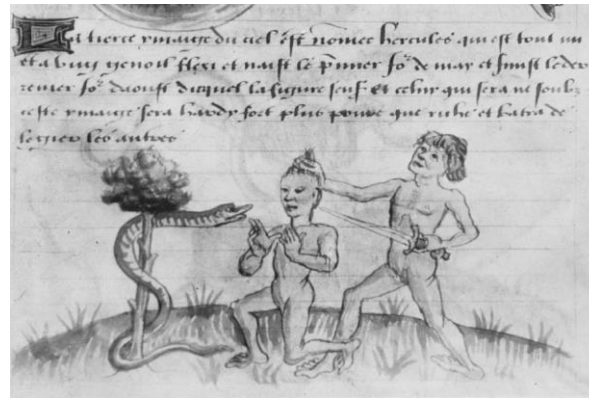 La tierce ymaige du ciel est nomee hercules qui est tout nu
et a ung genoil flexi et naist le pmier Jor de may et finist le der
renier Jor daoust duquel la figure sensuit Et celuy qui sera ne soubz
ceste ymaige sera hardy fort plus povre que riche et batra de
legier les autres